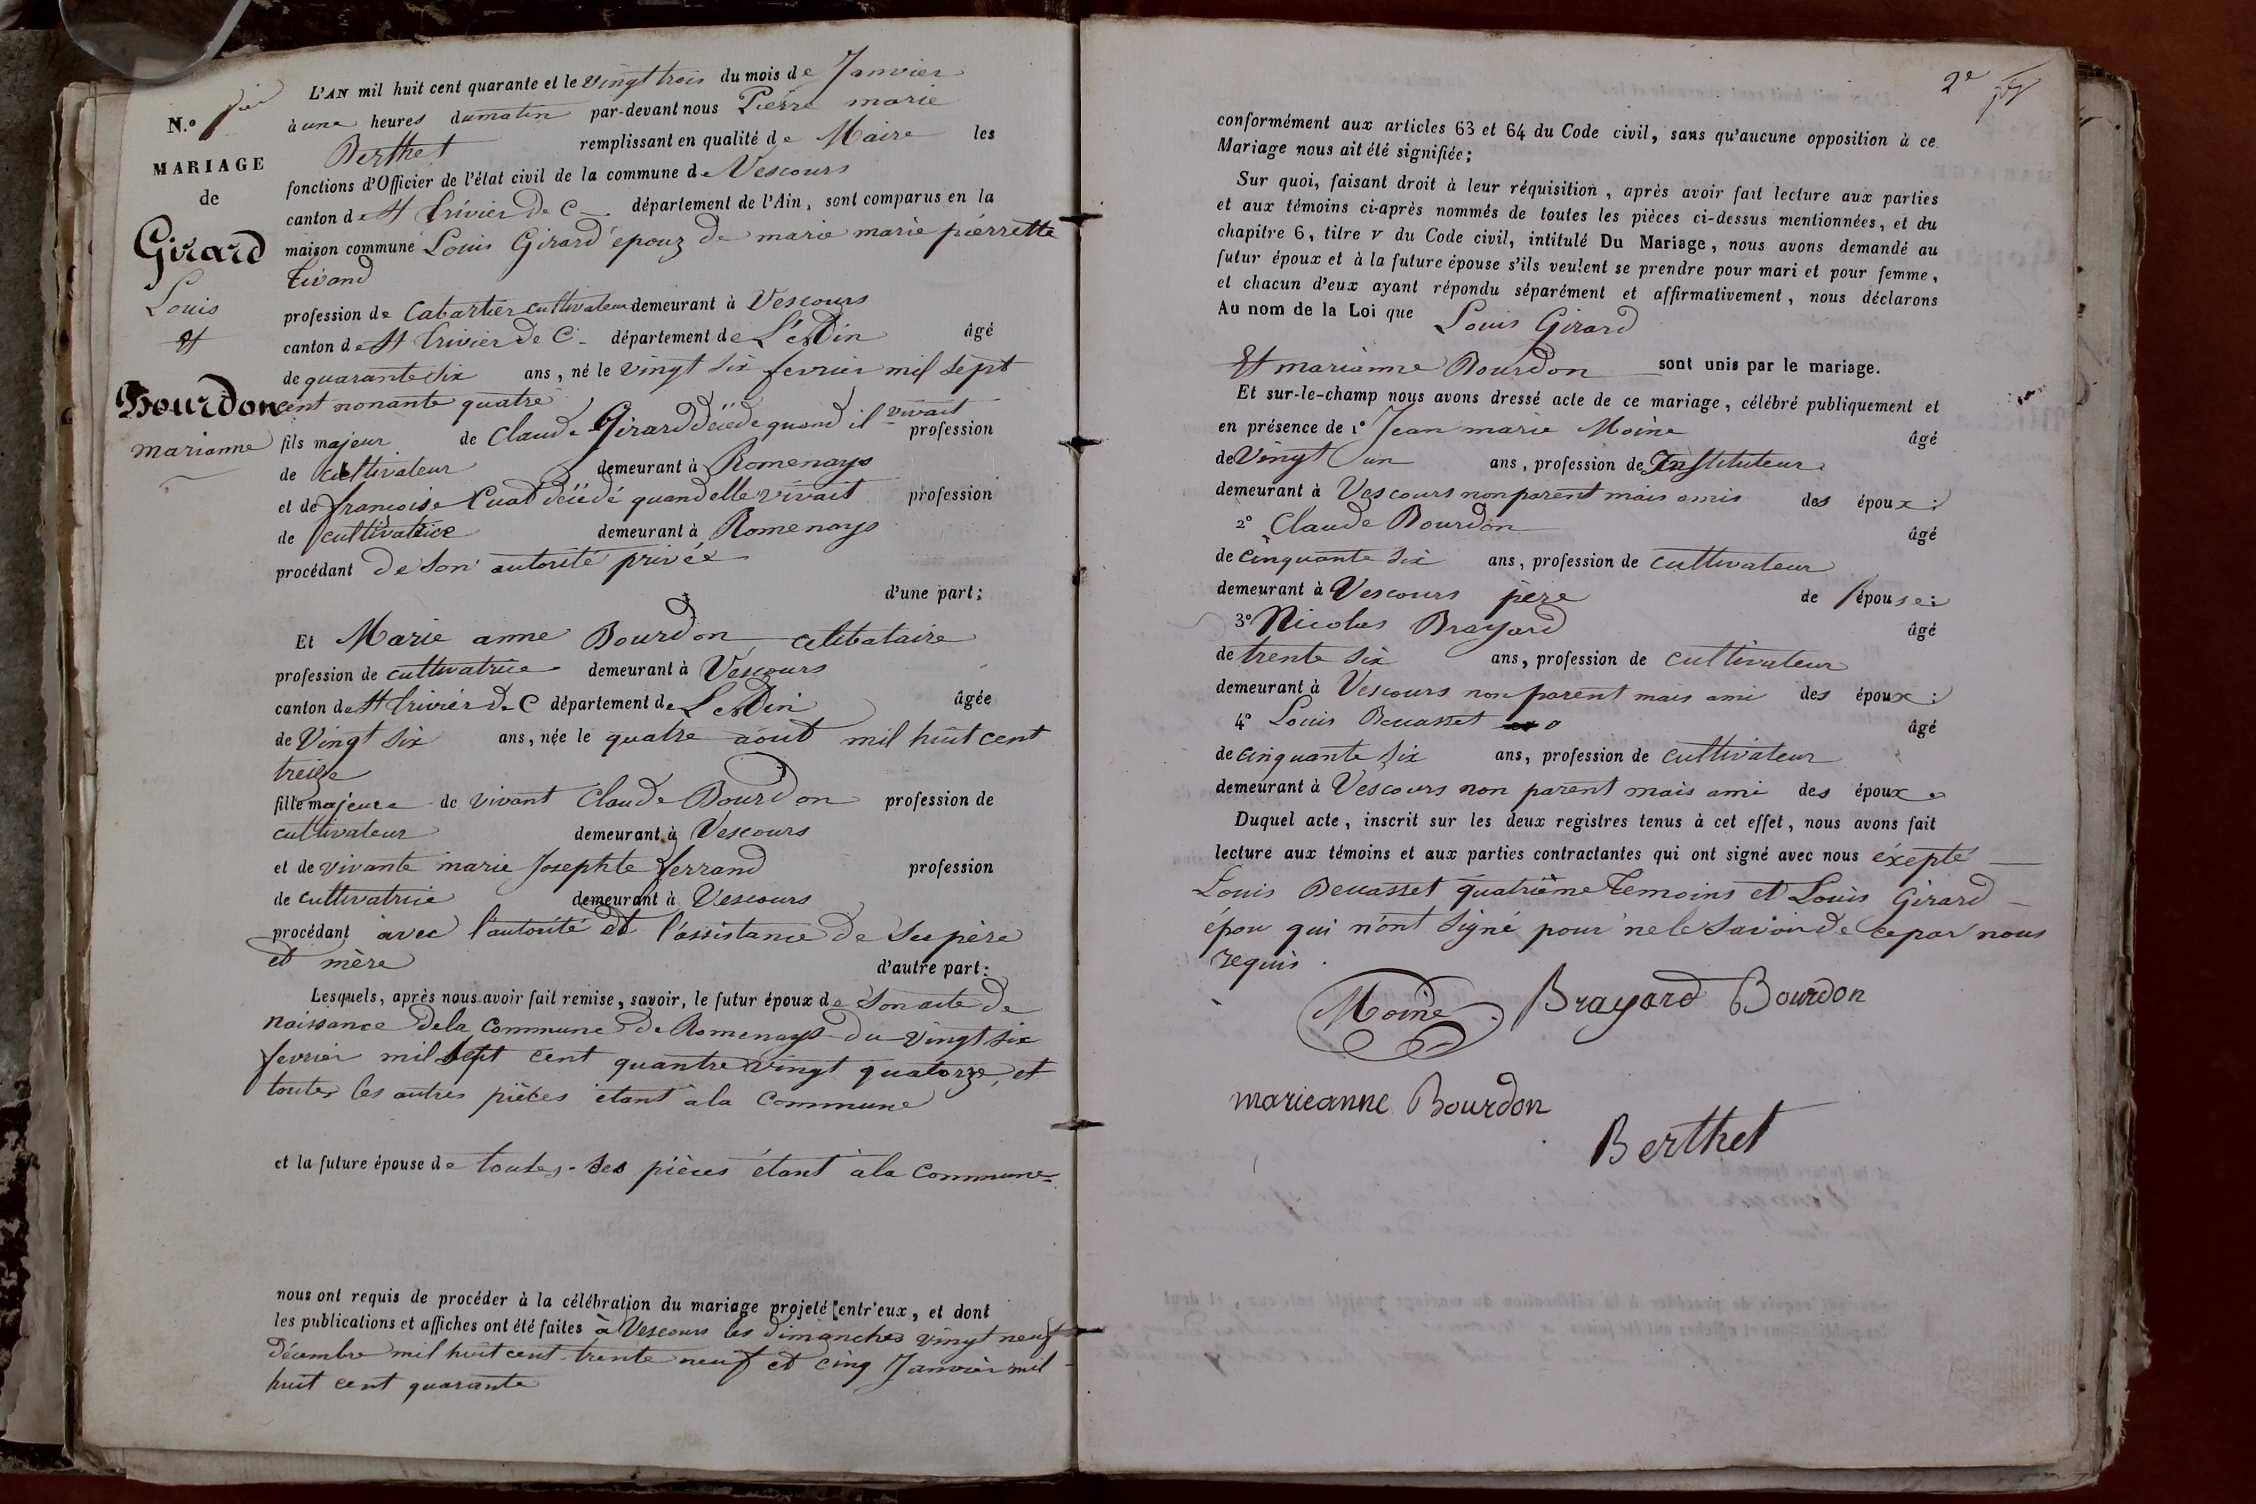 N.º 1ier
MARIAGE
de
Girard
Louis
et
Bourdon
marianne
L'AN mil huit cent quarante et le vingt trois du mois de Janvier
à une heures du matin par-devant nous Pierre marie
Berthet remplissant en qualité de Maire les
fonctions d'Officier de l'état civil de la commune de Vescours
canton de St Trivier de C. département de l'Ain, sont comparus en la
maison commune Louis Girard épouz de marie marie pierrette
Tivand
profession de Cabartier cultivateur demeurant à Vescours
canton de St Trivier de C. département de L'Ain âgé
de quarante six ans, né le vingt six fevrier mil sept
cent nonante quatre
fils majeur de Claude Girard décédé quand il vivait profession
de cultivateur demeurant à Romenays
et de francoise Cuat décédé quand elle vivait profession
de cultivatrice demeurant à Romenays
procédant de son autorité privée
d'une part;
Et Marie anne Bourdon célibataire
profession de cultivatrice demeurant à Vescours
canton de St Trivier de C département de L'Ain âgée
de Vingt six ans, née le quatre août mil huit cent
treize
fille majeure de vivant Claude Bourdon profession de
cultivateur demeurant à Vescours
et de vivante marie Josephte ferrand profession
de cultivatrice demeurant à Vescours
procédant avec l'autorité et l'assistance de ses père
et mère d'autre part:
Lesquels, après nous avoir fait remise, savoir, le futur époux de son acte de
naissance de la commune de Romenays du vingt six
fevrier mil sept cent quantre vingt quatorze, et
toutes les autres pièces étant à la commune
et la future épouse de toutes ses pièces étant à la commune
nous ont requis de procéder à la célébration du mariage projeté entr'eux, et dont
les publications et affiches ont été faites à Vescours les dimanches vingt neuf
décembre mil huit cent trente neuf et cinq Janvier mil
huit cent quarante
2e
conformément aux articles 63 et 64 du Code civil, sans qu'aucune opposition à ce
Mariage nous ait été signifiée;
Sur quoi, faisant droit à leur réquisition, après avoir fait lecture aux parties
et aux témoins ci-après nommés de toutes les pièces ci-dessus mentionnées, et du
chapitre 6, titre v du Code civil, intitulé Du Mariage, nous avons demandé au
futur époux et à la future épouse s'ils veulent se prendre pour mari et pour femme,
et chacun d'eux ayant répondu séparément et affirmativement, nous déclarons
Au nom de la Loi que Louis Girard
Et marianne Bourdon sont unis par le mariage.
Et sur-le-champ nous avons dressé acte de ce mariage, célébré publiquement et
en présence de 1º Jean marie Moine âgé
de Vingt un ans, profession de Instituteur
demeurant à Vescours non parent mais amis des époux:
2º Claude Bourdon âgé
de cinquante six ans, profession de cultivateur
demeurant à Vescours père de l'épouse:
3º Nicolas Brayard âgé
de trente six ans, profession de cultivateur
demeurant à Vescours non parent mais ami des époux:
4º Louis Beuasset âgé
de cinquante six ans, profession de cultivateur
demeurant à Vescours non parent mais ami des époux.
Duquel acte, inscrit sur les deux registres tenus à cet effet, nous avons fait
lecture aux témoins et aux parties contractantes qui ont signé avec nous éxepté
Louis Beuasset quatrième temoins et Louis Girard
épou qui n'ont signé pour ne le savoir de ce par nous
requis.
Moine Brayard Bourdon
marieanne Bourdon
Berthet